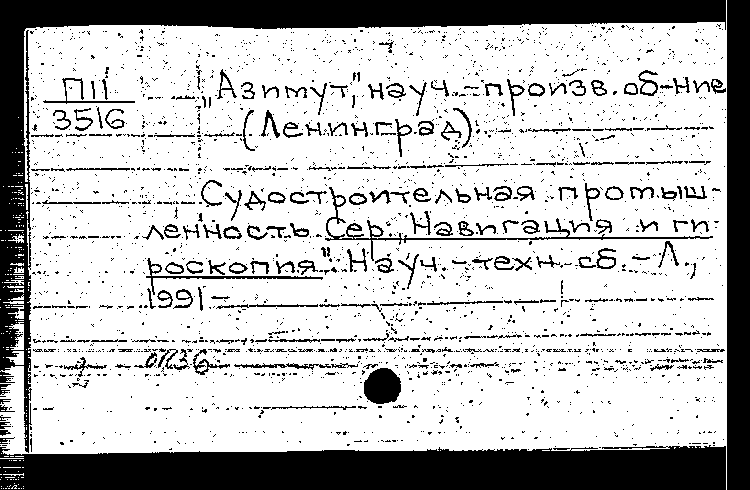 П11
3516
„Азимут", науч.-произв. об-ние
(Ленинград).
Судостроительная промыш-
ленность. Сер. „Навигация и ги-
роскопия". Науч.-техн. сб. - Л.,
1991 -